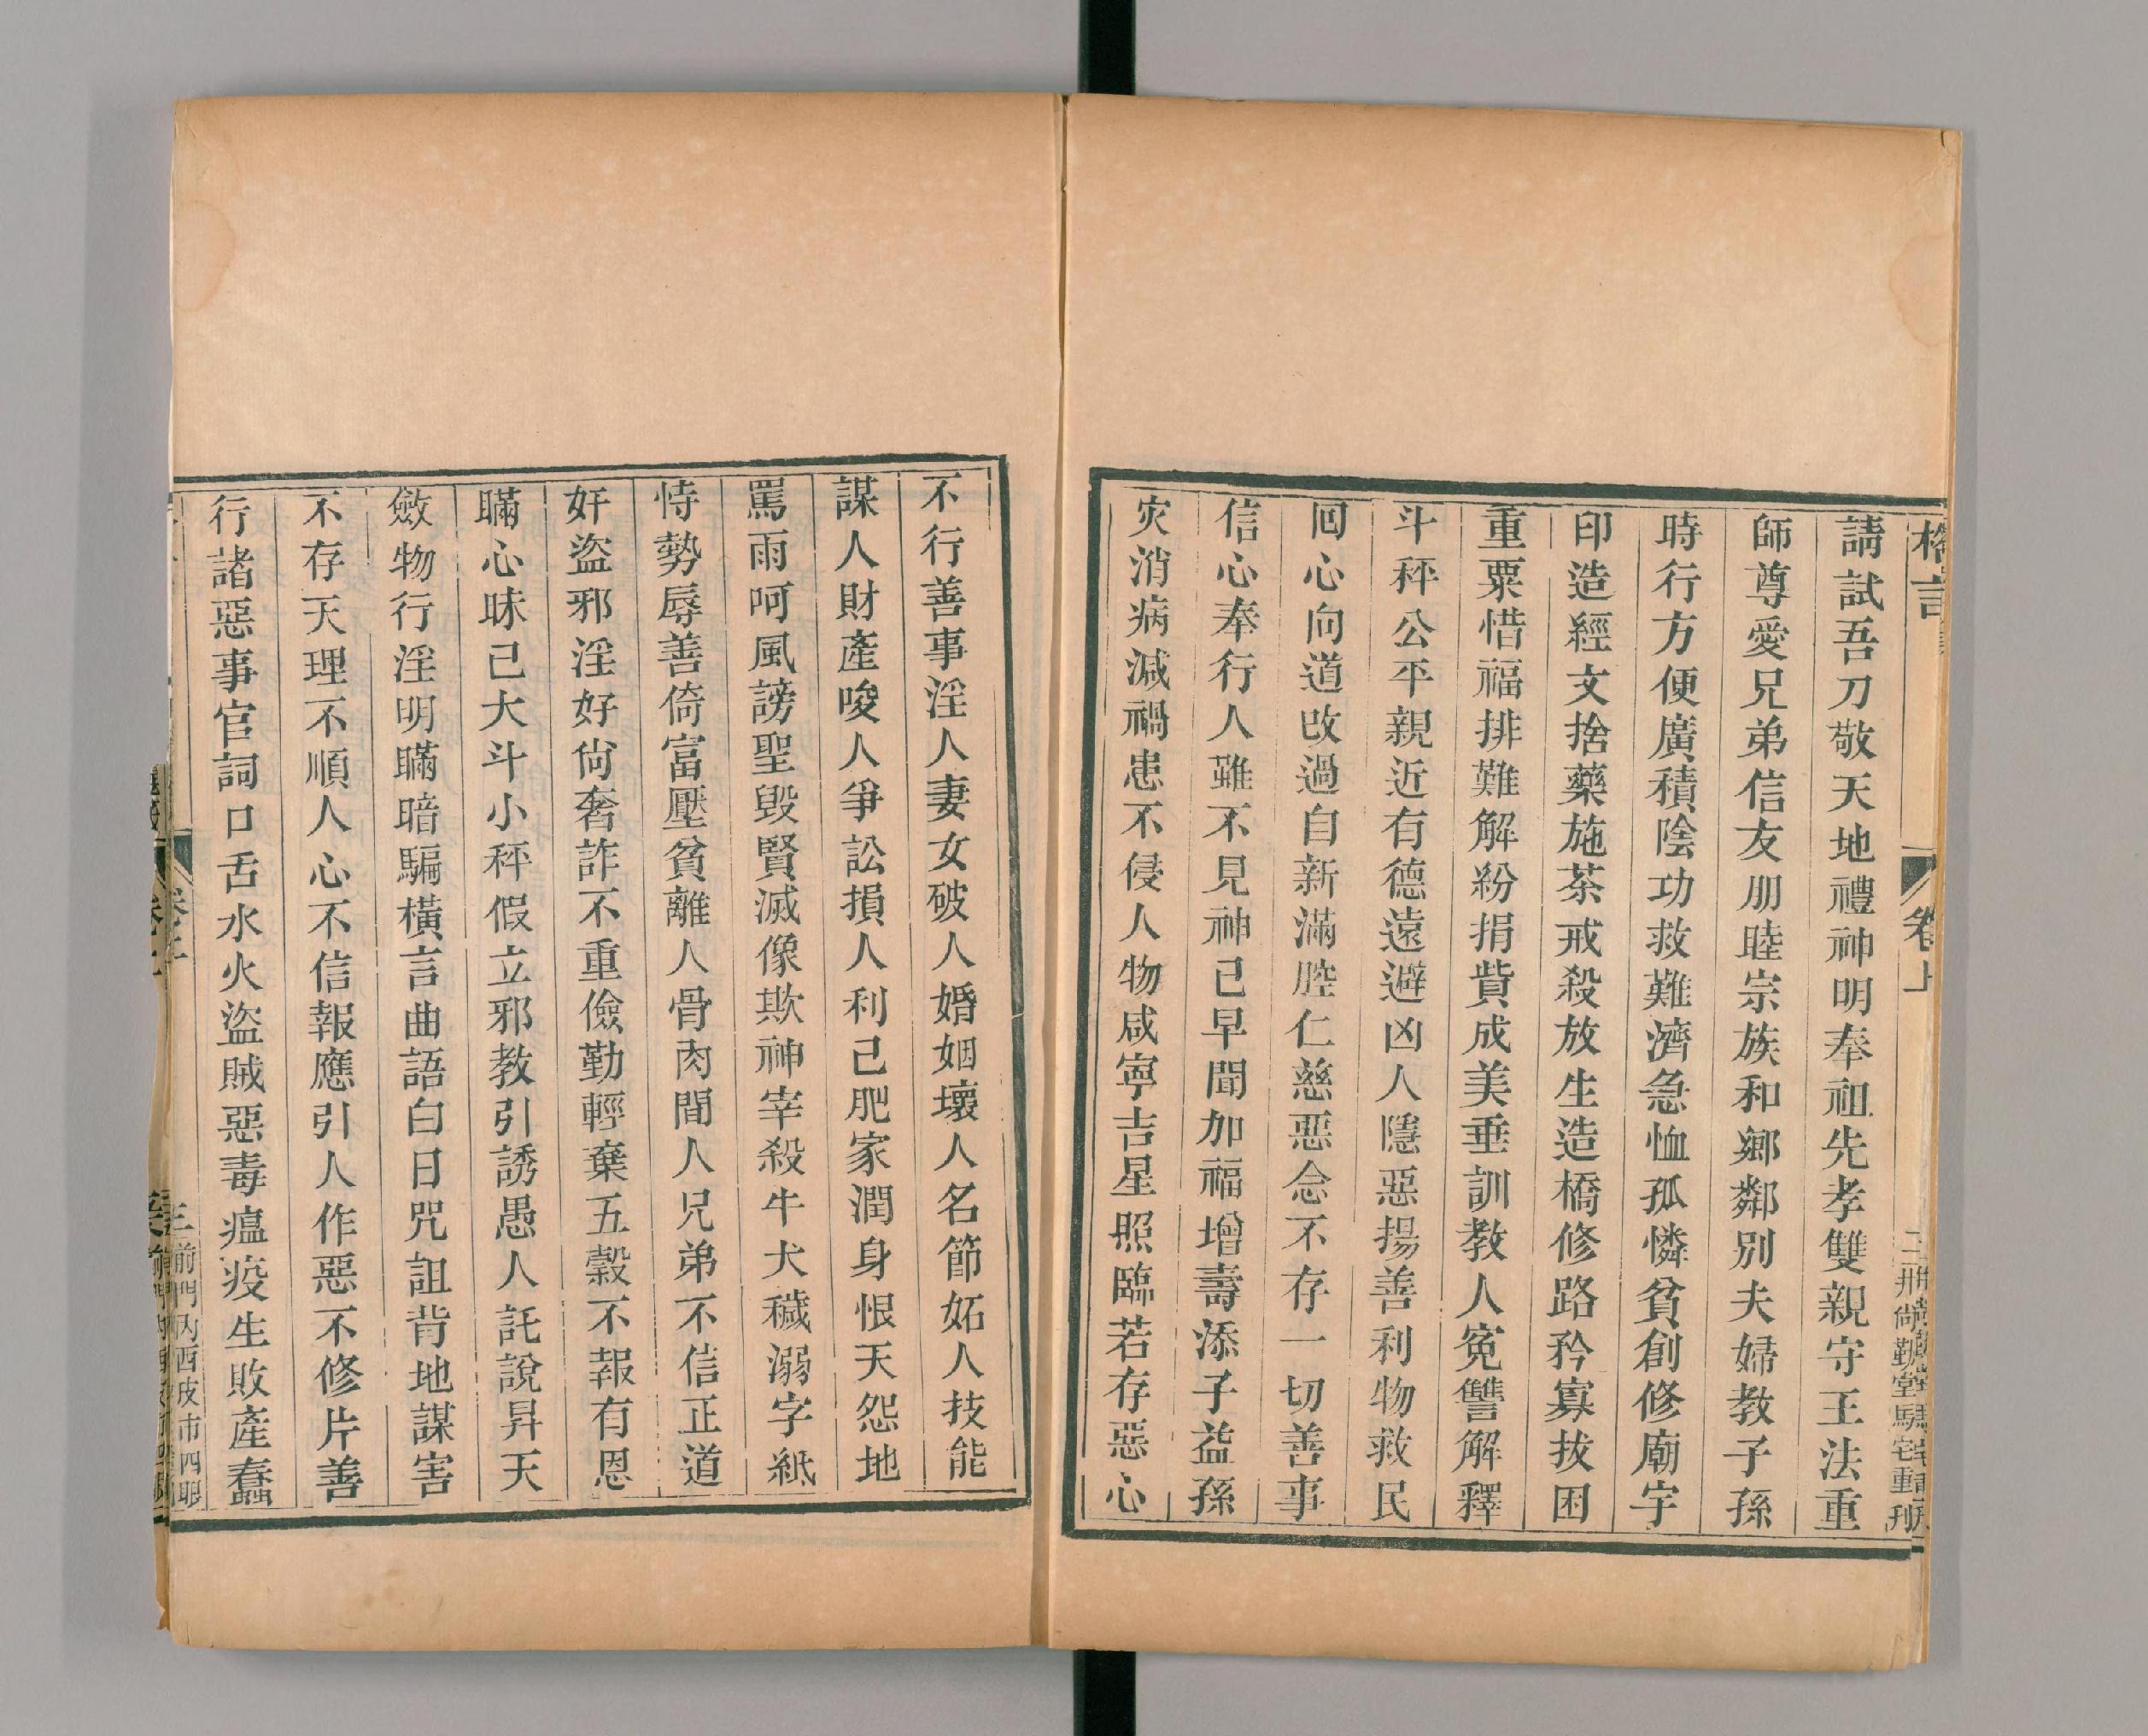 格言
卷上
二
刑尚勤堂駱宅重刊
請試吾刀敬天地禮神明奉祖先孝雙親守王法重
師尊愛兄弟信友朋睦宗族和鄉鄰別夫婦教子孫
時行方便廣積陰功救難濟急恤孤憐貧創修廟宇
印造經文捨藥施茶戒殺放生造橋修路矜寡拔困
重粟惜福排難解紛捐貲成美垂訓教人寃讐解釋
斗秤公平親近有德遠避凶人隱惡揚善利物救民
囘心向道改過自新滿腔仁慈惡念不存一切善事
信心奉行人雖不見神已早聞加福增壽添子益孫
灾消病減禍患不侵人物咸寧吉星照臨若存惡心
不行善事淫人妻女破人婚姻壞人名節妬人技能
謀人財產唆人爭訟損人利己肥家潤身恨天怨地
罵雨呵風謗聖毀賢滅像欺神宰殺牛犬穢溺字紙
恃勢辱善倚富壓貧離人骨肉間人兄弟不信正道
奸盜邪淫好尙奢詐不重儉勤輕棄五穀不報有恩
瞞心昧己大斗小秤假立邪教引誘愚人託說昇天
斂物行淫明瞞暗騙橫言曲語白日咒詛背地謀害
不存天理不順人心不信報應引人作惡不修片善
行諸惡事官詞口舌水火盜賊惡毒瘟疫生敗產蠢
三
前門內西皮市四眼